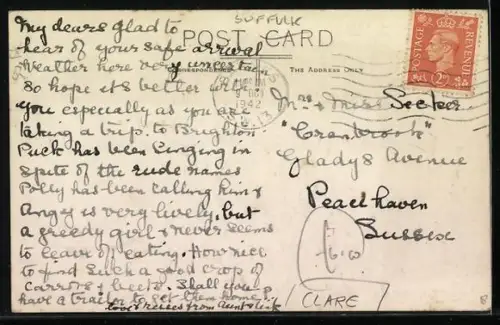 SUFFOLK
POST CARD
CORRESPONDENCE
THE ADDRESS ONLY
POSTAGE
REVENUE
2D
1942
My dears Glad to
hear of your safe arrival
Weather here very uncertain
so hope it's better with
you especially as you are
taking a trip to Brighton
Puck has been singing in
spite of the rude names
Polly has been calling him &
Angy is very lively, but
a greedy girl & never seems
to leave off eating. How nice
to find such a good crop of
carrots & beets. Shall you
have a trailer to get them home
love & kisses from Aunt
Mrs & Miss Seeker
"Cranbrook"
Gladys Avenue
Peacehaven
Sussex
£6.00
CLARE
8